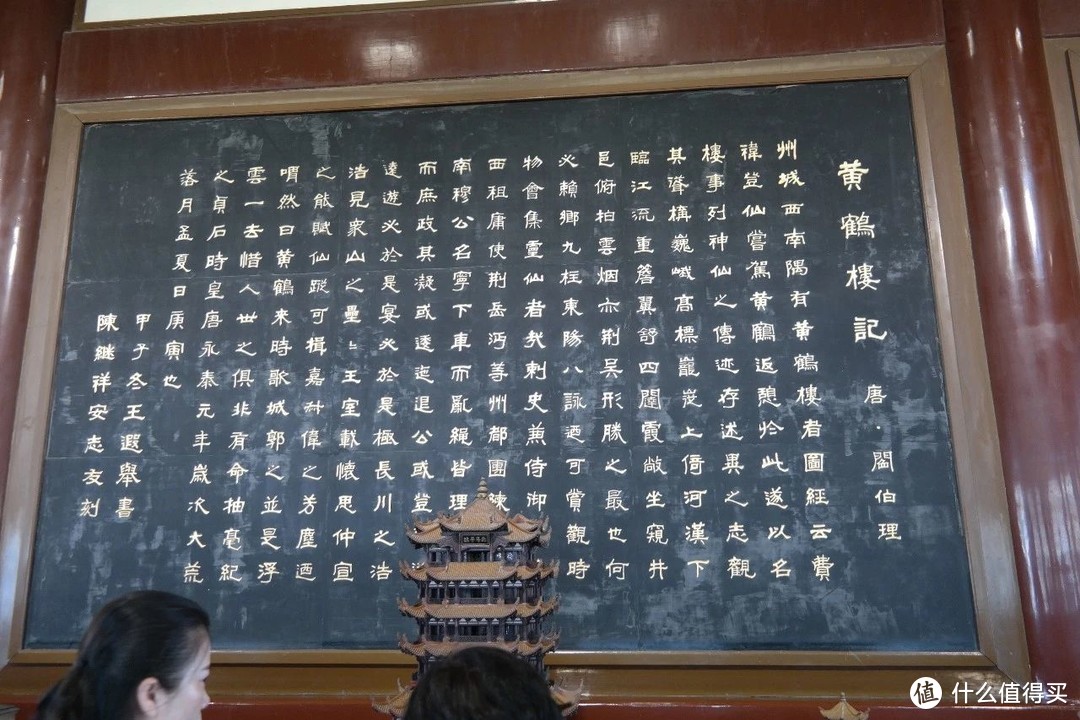 黄鶴樓記 唐·閻伯理
州城西南隅有黄鶴樓者圖經云費
禕登仙嘗駕黄鶴返憩於此遂以名
樓事列神仙之傳迹存述異之志觀
其聳構巍峨高標巃嵷上倚河漢下
臨江流重簷翼舒四闥霞敞坐窺井
邑俯拍雲烟亦荆吳形勝之最也何
必賴鄉九柱東陽八詠迺可賞觀時
物會集靈仙者哉刺史兼侍御
西租庸使荆岳沔等州都團練
南穆公名寧下車而亂繩皆理
而庶政其凝或逶迤退公或登
遠遊必於是宴必於是極長川之浩
浩見衆山之壘〻王室載懷思仲宣
之能賦仙蹤可揖嘉叔偉之芳塵迺
喟然曰黄鶴來時歌城郭之並是浮
雲一去惜人世之俱非有命抽毫紀
之貞石時皇唐永泰元年歲次大荒
落月孟夏日庚寅也
甲子冬王遐舉書
陳继祥安志友刻
值 什么值得买